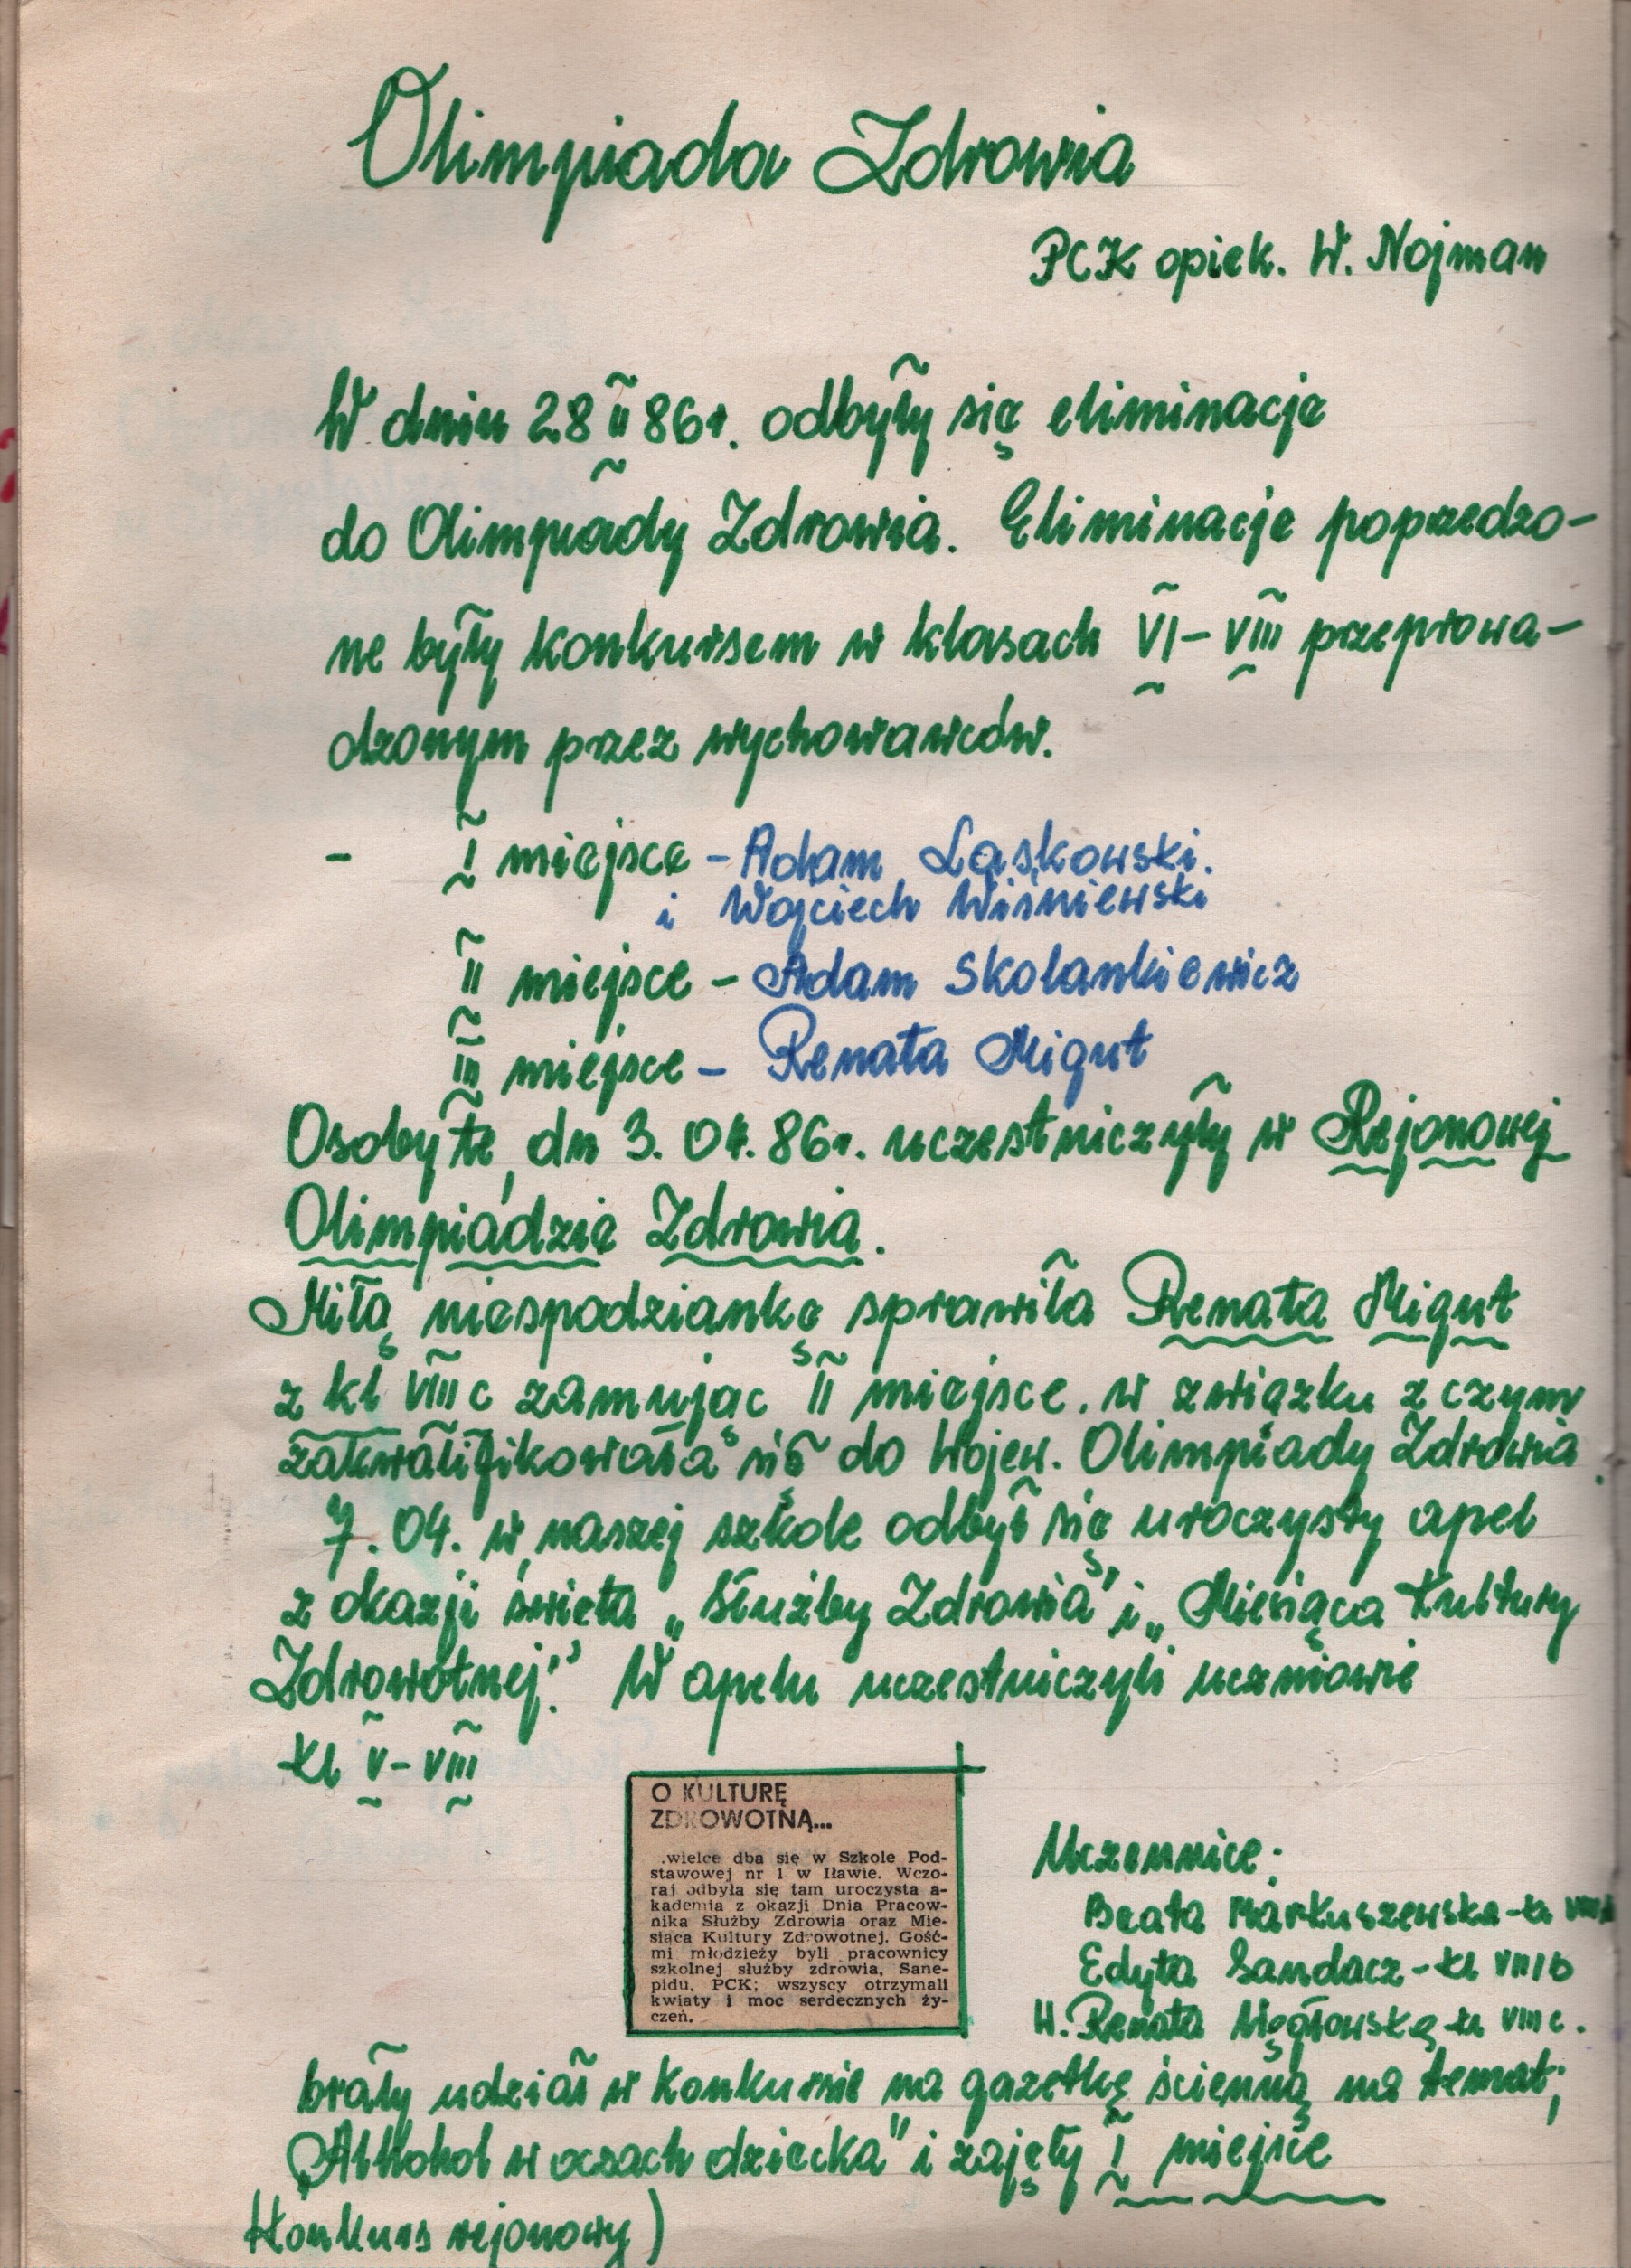 Olimpiada Zdrowia
PCK opiek. W. Nojman
W dniu 28 II 86r. odbyły się eliminacje
do Olimpiady Zdrowia. Eliminacje poprzedzo-
ne były konkursem w klasach VI-VIII przeprowa-
dzonym przez wychowawców.
- I miejsce - Adam Laskowski.
i Wojciech Wiśniewski
II miejsce - Adam Skolankiewicz
III miejsce - Renata Migut
Osoby te, dn 3.04.86r. uczestniczyły w Rejonowej
Olimpiadzie Zdrowia.
Miłą niespodziankę sprawiła Renata Migut
z kl VIII c zajmując II miejsce. w związku z czym
zakwalifikowała się do Wojew. Olimpiady Zdrowia.
7.04. w naszej szkole odbył się uroczysty apel
z okazji święta „Służby Zdrowia" i „Miesiąca Kultury
Zdrowotnej." W apelu uczestniczyli uczniowie
kl V-VIII
O KULTURĘ
ZDROWOTNĄ...
..wielce dba się w Szkole Pod-
stawowej nr 1 w Iławie. Wczo-
raj odbyła się tam uroczysta a-
kademia z okazji Dnia Pracow-
nika Służby Zdrowia oraz Mie-
siąca Kultury Zdrowotnej. Gość-
mi młodzieży byli pracownicy
szkolnej służby zdrowia, Sane-
pidu, PCK; wszyscy otrzymali
kwiaty i moc serdecznych ży-
czeń.
Uczennice:
Beata Markuszewska - kl
Edyta Sandacz - kl VIII b
W. Renata - kl VIII c.
brały udział w konkursie na gazetkę ścienną na temat;
„Alkohol w oczach dziecka" i zajęły I miejsce
Konkurs rejonowy)